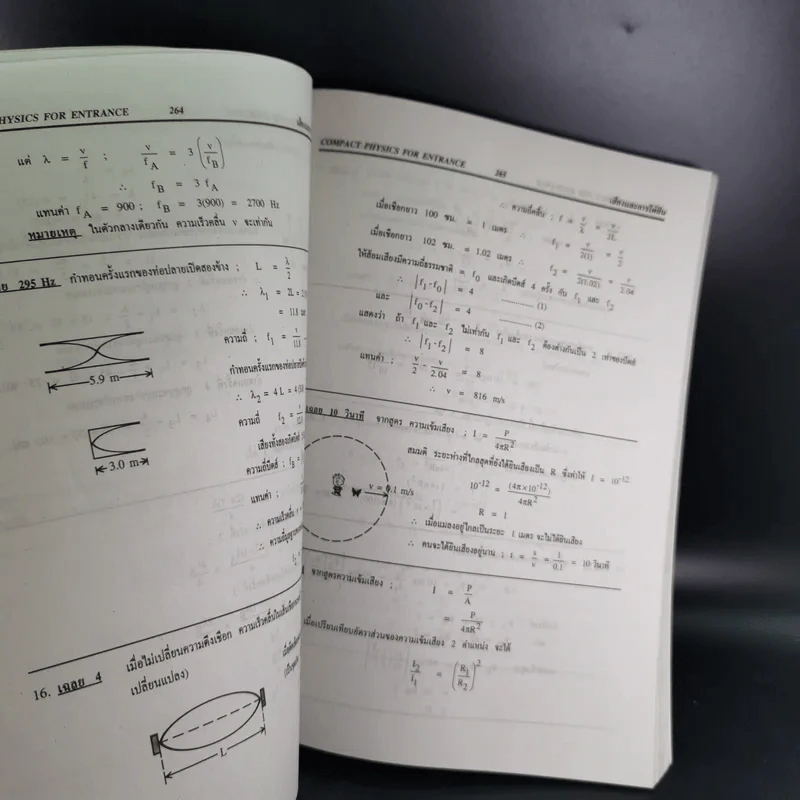 PHYSICS FOR ENTRANCE 264
แต่ λ = v/f ; v/f_A = 3 (v/f_B)
∴ f_B = 3 f_A
แทนค่า f_A = 900 ; f_B = 3(900) = 2700 Hz
หมายเหตุ ในตัวกลางเดียวกัน ความเร็วคลื่น v จะเท่ากัน
295 Hz กำทอนครั้งแรกของท่อปลายเปิดสองข้าง ; L = λ/2
∴ λ₁ = 2L =
= 11.8
ความถี่ ; f₁ = v/11.8
5.9 m
กำทอนครั้งแรกของท่อ
∴ λ₂ = 4L =
ความถี่ f₂ =
3.0 m
ความถี่บีตส์ ; f_B =
แทนค่า ;
∴ ความเร็วคลื่น
16. เฉลย 4 เมื่อไม่เปลี่ยนความตึงเชือก ความเร็วคลื่นในเส้นเชือก
เปลี่ยนแปลง)
L
COMPACT PHYSICS FOR ENTRANCE 265 เสียงและการได้ยิน
∴ ความถี่คลื่น ; f = v/λ = v/2L
เมื่อเชือกยาว 100 ซม. = 1 เมตร ∴ f₁ = v/2(1) = v/2
เมื่อเชือกยาว 102 ซม. = 1.02 เมตร ∴ f₂ = v/2(1.02) = v/2.04
ให้ส้อมเสียงมีความถี่ธรรมชาติ = f₀ และเกิดบีตส์ 4 ครั้ง กับ f₁ และ f₂
∴ |f₁-f₀| = 4 ............ (1)
และ |f₀-f₂| = 4 ............ (2)
แสดงว่า ถ้า f₁ และ f₂ ไม่เท่ากัน f₁ และ f₂ ต้องต่างกันเป็น 2 เท่าของบีตส์
∴ |f₁-f₂| = 8
แทนค่า ; v/2 - v/2.04 = 8
∴ v = 816 m/s
เฉลย 10 วินาที จากสูตร ความเข้มเสียง ; I = P/4πR²
สมมติ ระยะห่างที่ไกลสุดที่ยังได้ยินเสียงเป็น R ซึ่งทำให้ I = 10⁻¹²
10⁻¹² = (4π×10⁻¹²)/4πR²
v = 0.1 m/s
R = 1
∴ เมื่อแมลงอยู่ไกลเป็นระยะ 1 เมตร จะไม่ได้ยินเสียง
∴ คนจะได้ยินเสียงอยู่นาน ; t = s/v = 1/0.1 = 10 วินาที
จากสูตรความเข้มเสียง ; I = P/A
= P/4πR²
เมื่อเปรียบเทียบอัตราส่วนของความเข้มเสียง 2 ตำแหน่ง จะได้
I₂/I₁ = (R₁/R₂)²